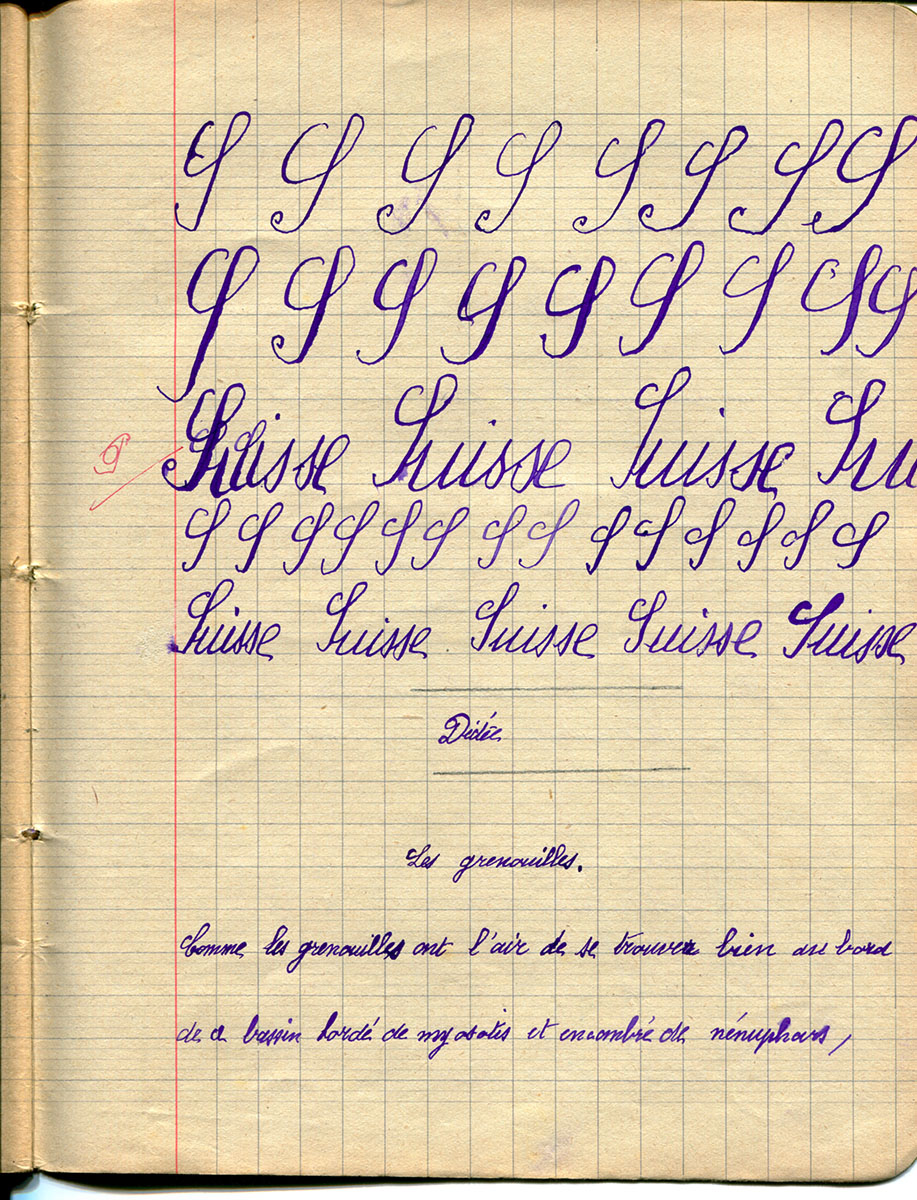 S S S S S S S S
S S S S S S S S S
Suisse Suisse Suisse Su
S S S S S S S S S S S S S S
Suisse Suisse Suisse Suisse Suisse
Dictée
Les grenouilles.
Comme les grenouilles ont l'air de se trouver bien au bord
de ce bassin bordé de myosotis et encombré de nénuphars,